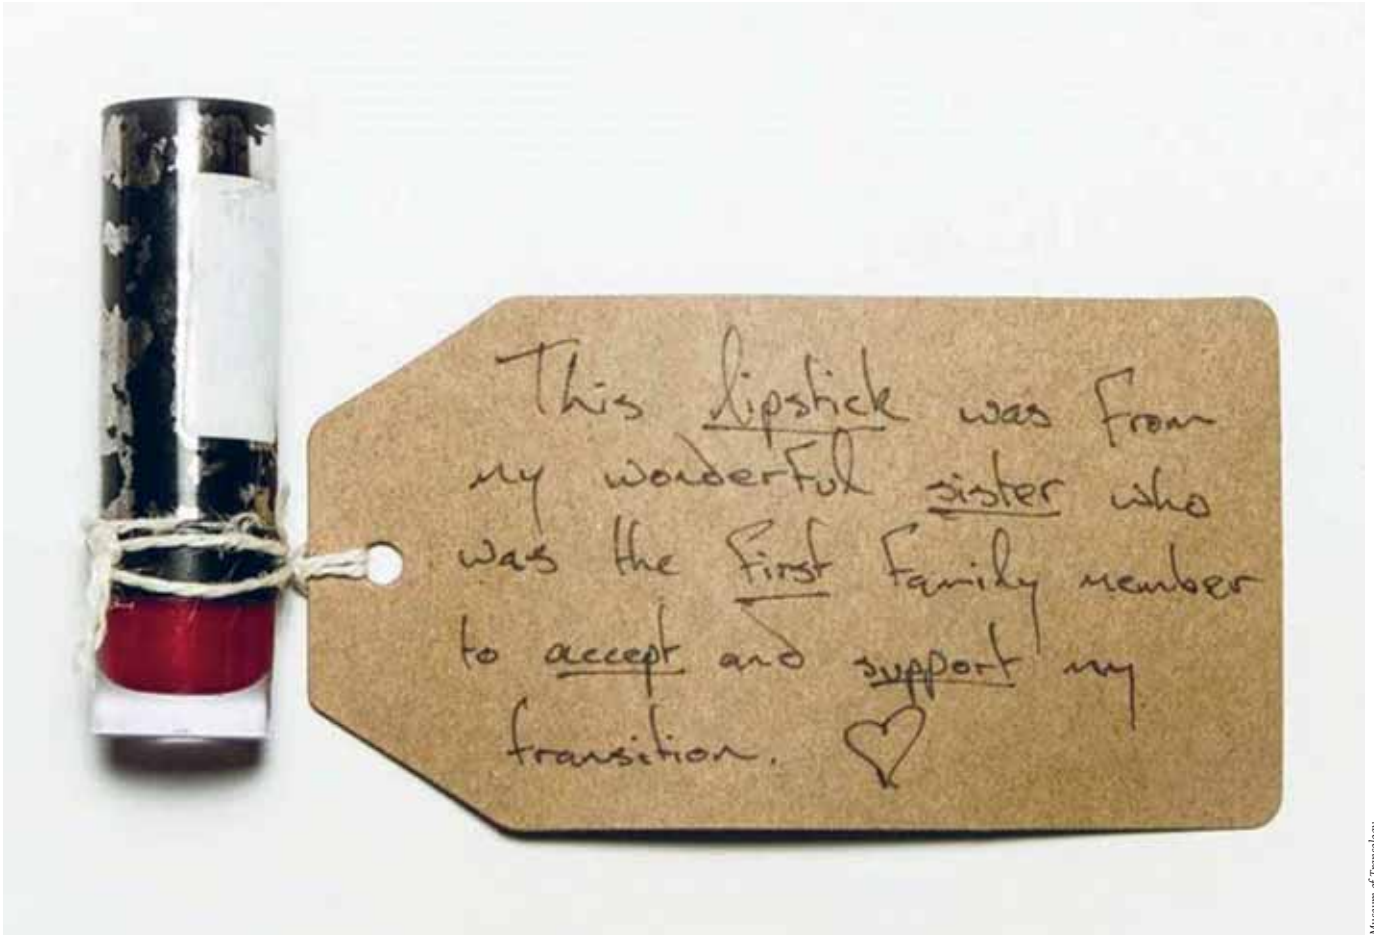 This lipstick was from
my wonderful sister who
was the first family member
to accept and support my
transition. ♡
Museum of Transology